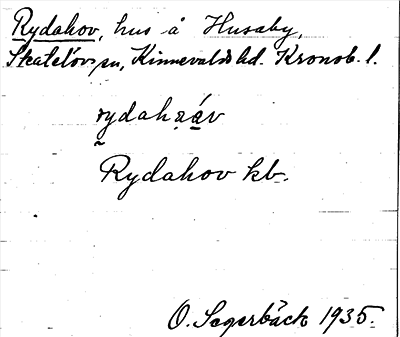 Rydahov, hus å Husaby,
Skatelövs sn, Kinnevalds hd. Kronob. l.
rydahaáv
Rydahov kb.
O. Segerbäck 1935.